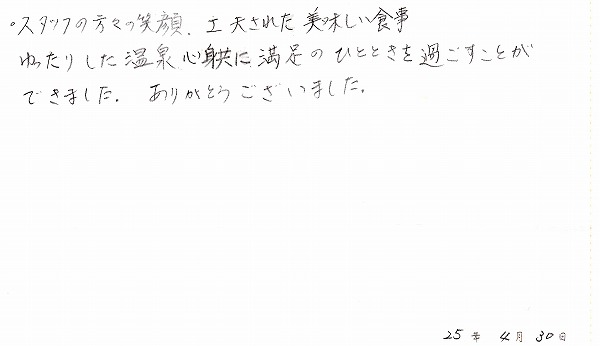 。スタッフの方々の笑顔、工夫された美味しい食事
ゆったりした温泉心身共に満足のひとときを過ごすことが
できました。ありがとうございました。
25年 4月 30日